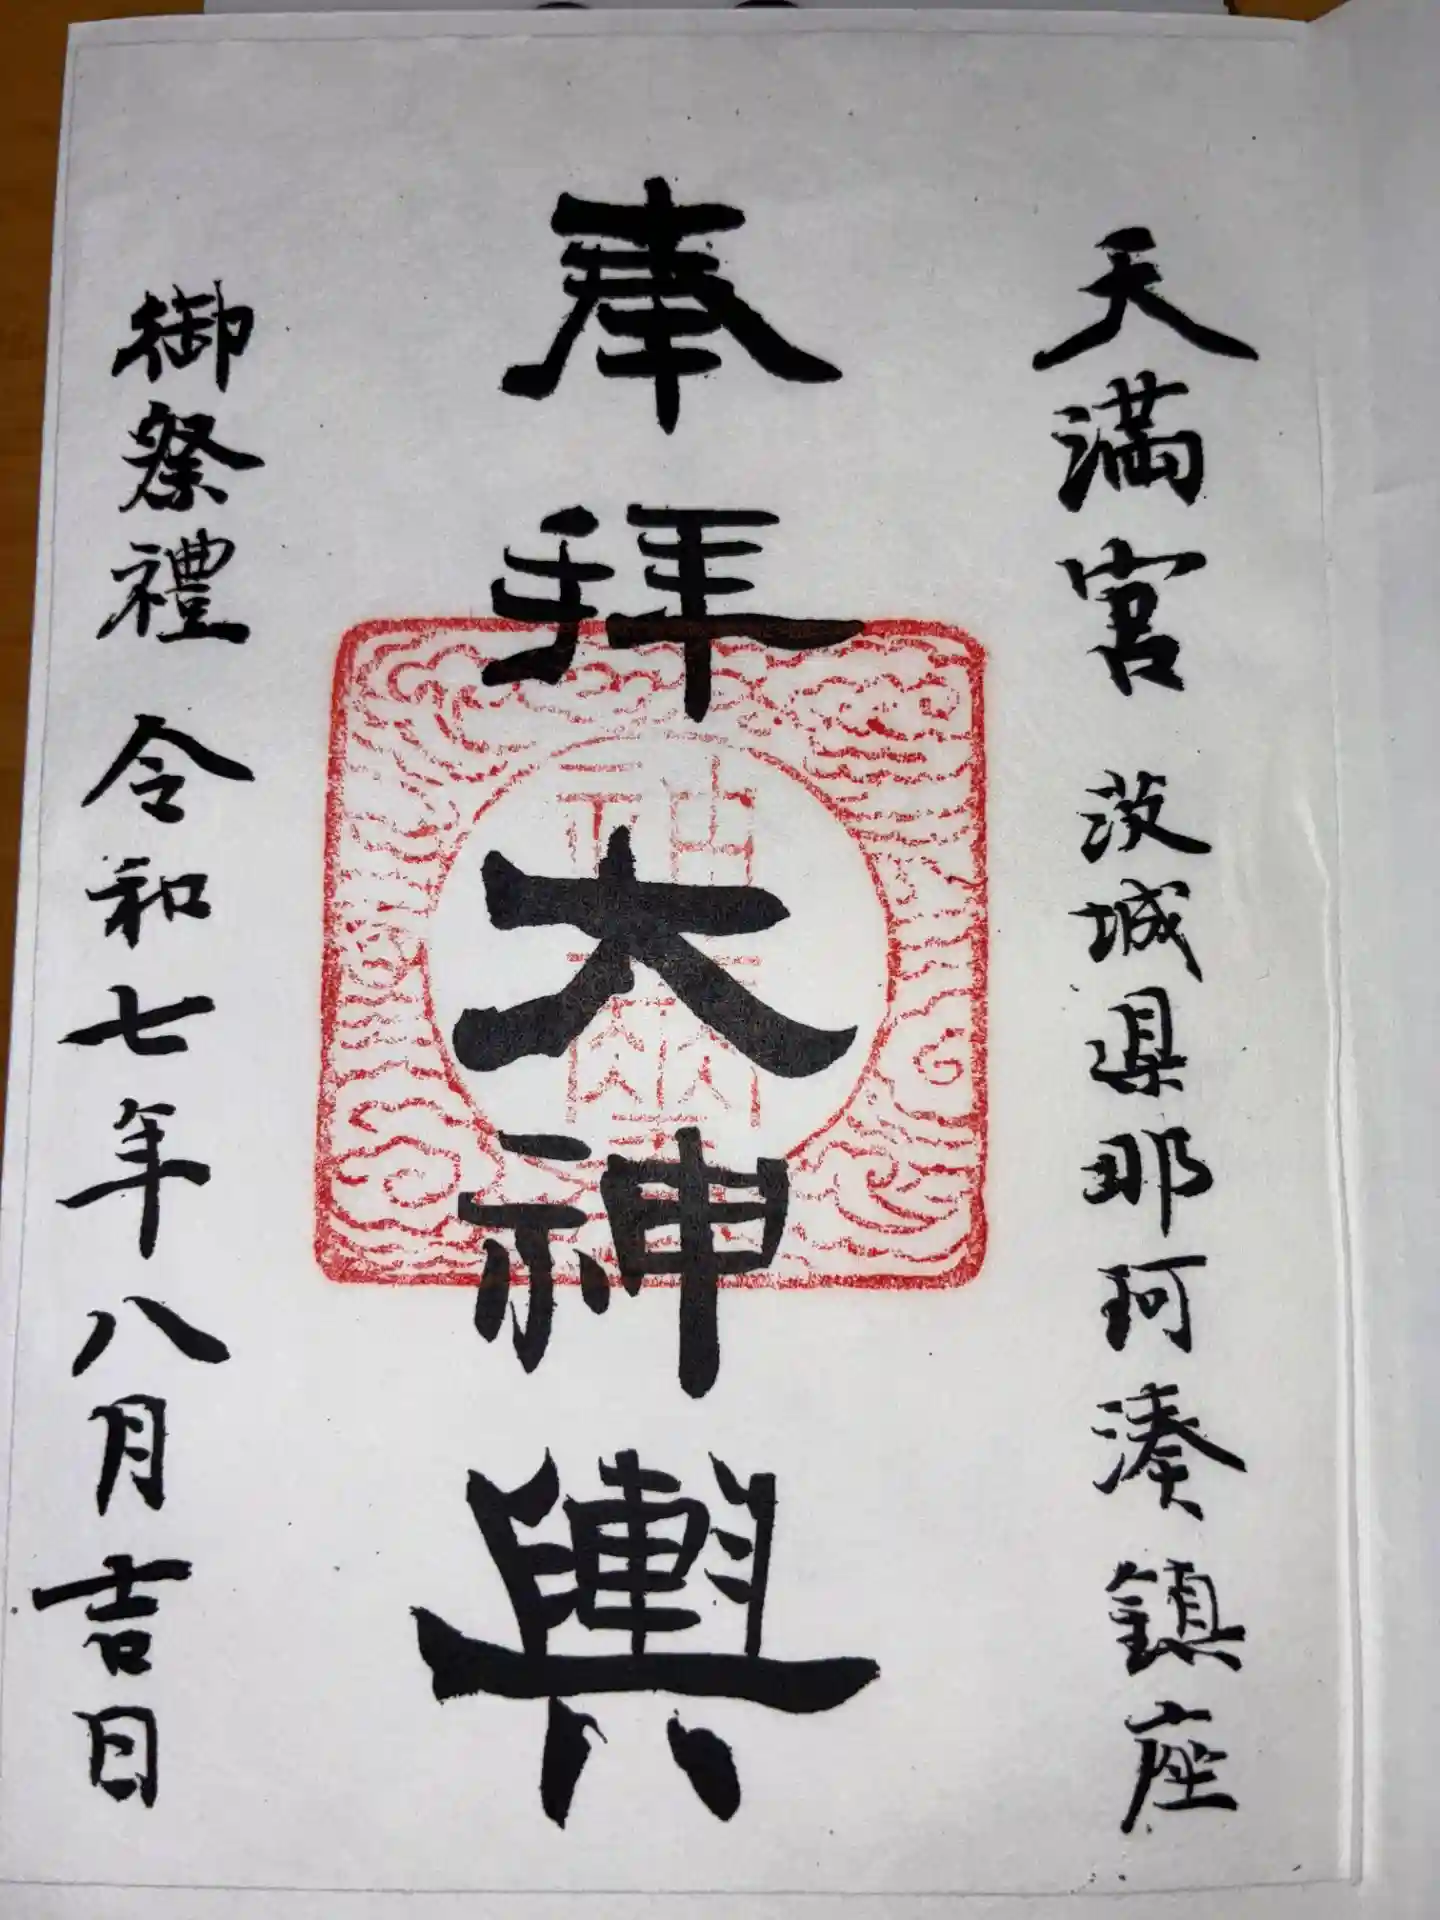 天満宮 茨城県那珂湊鎮座
奉拝 大神輿
御祭禮 令和七年八月吉日